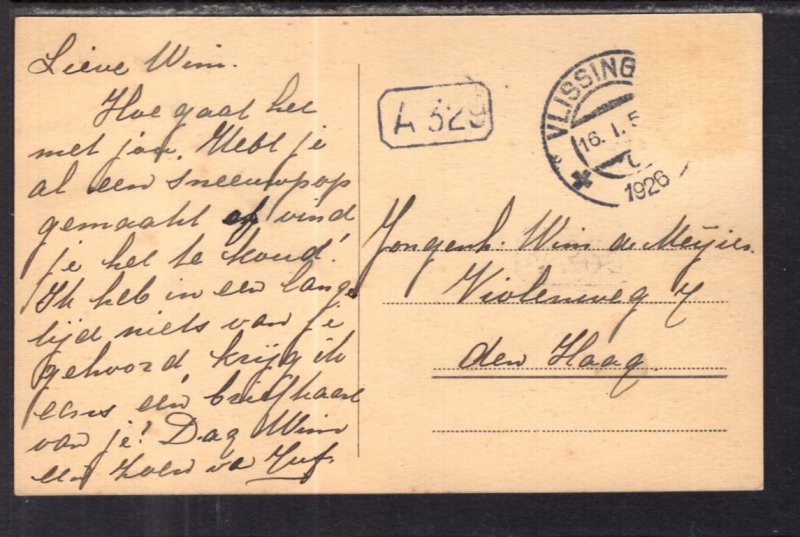 Lieve Wim.
Hoe gaat het
met jou. Hebt je
al een sneeuwpop
gemaakt of vind
je het te koud!
Ik heb in een lange
tijd niets van je
gehoord, krijg ik
eens een briefkaart
van je? Dag Wim
een zoen va Juf.
A 329
VLISSING
16. 1. 5
1926
Jongenh. Wim de Meijier.
Violenweg 7
den Haag.